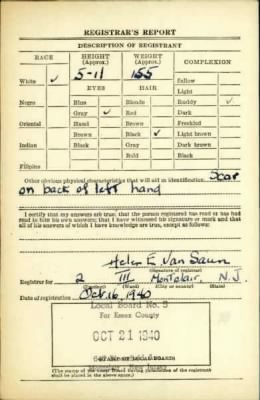 REGISTRAR'S REPORT
DESCRIPTION OF REGISTRANT
RACE HEIGHT (Approx.) WEIGHT (Approx.) COMPLEXION
White ✓ 5-11 155 Sallow
EYES HAIR Light
Negro Blue Blonde Ruddy ✓
Gray ✓ Red Dark
Oriental Hazel Brown Freckled
Brown Black ✓ Light brown
Indian Black Gray Dark brown
Bald Black
Filipino
Other obvious physical characteristics that will aid in identification Scar
on back of left hand
I certify that my answers are true; that the person registered has read or has had
read to him his own answers; that I have witnessed his signature or mark and that
all of his answers of which I have knowledge are true, except as follows:
Helen E. Van Saun
(Signature of registrar)
Registrar for 2 III Montclair, N.J.
(Precinct) (Ward) (City or county) (State)
Date of registration Oct. 16, 1940
Local Board No. 9
For Essex County
OCT 21 1940
(STAMP OF LOCAL BOARD)
(The stamp of the Local Board having jurisdiction of the registrant
shall be placed in the above space.)